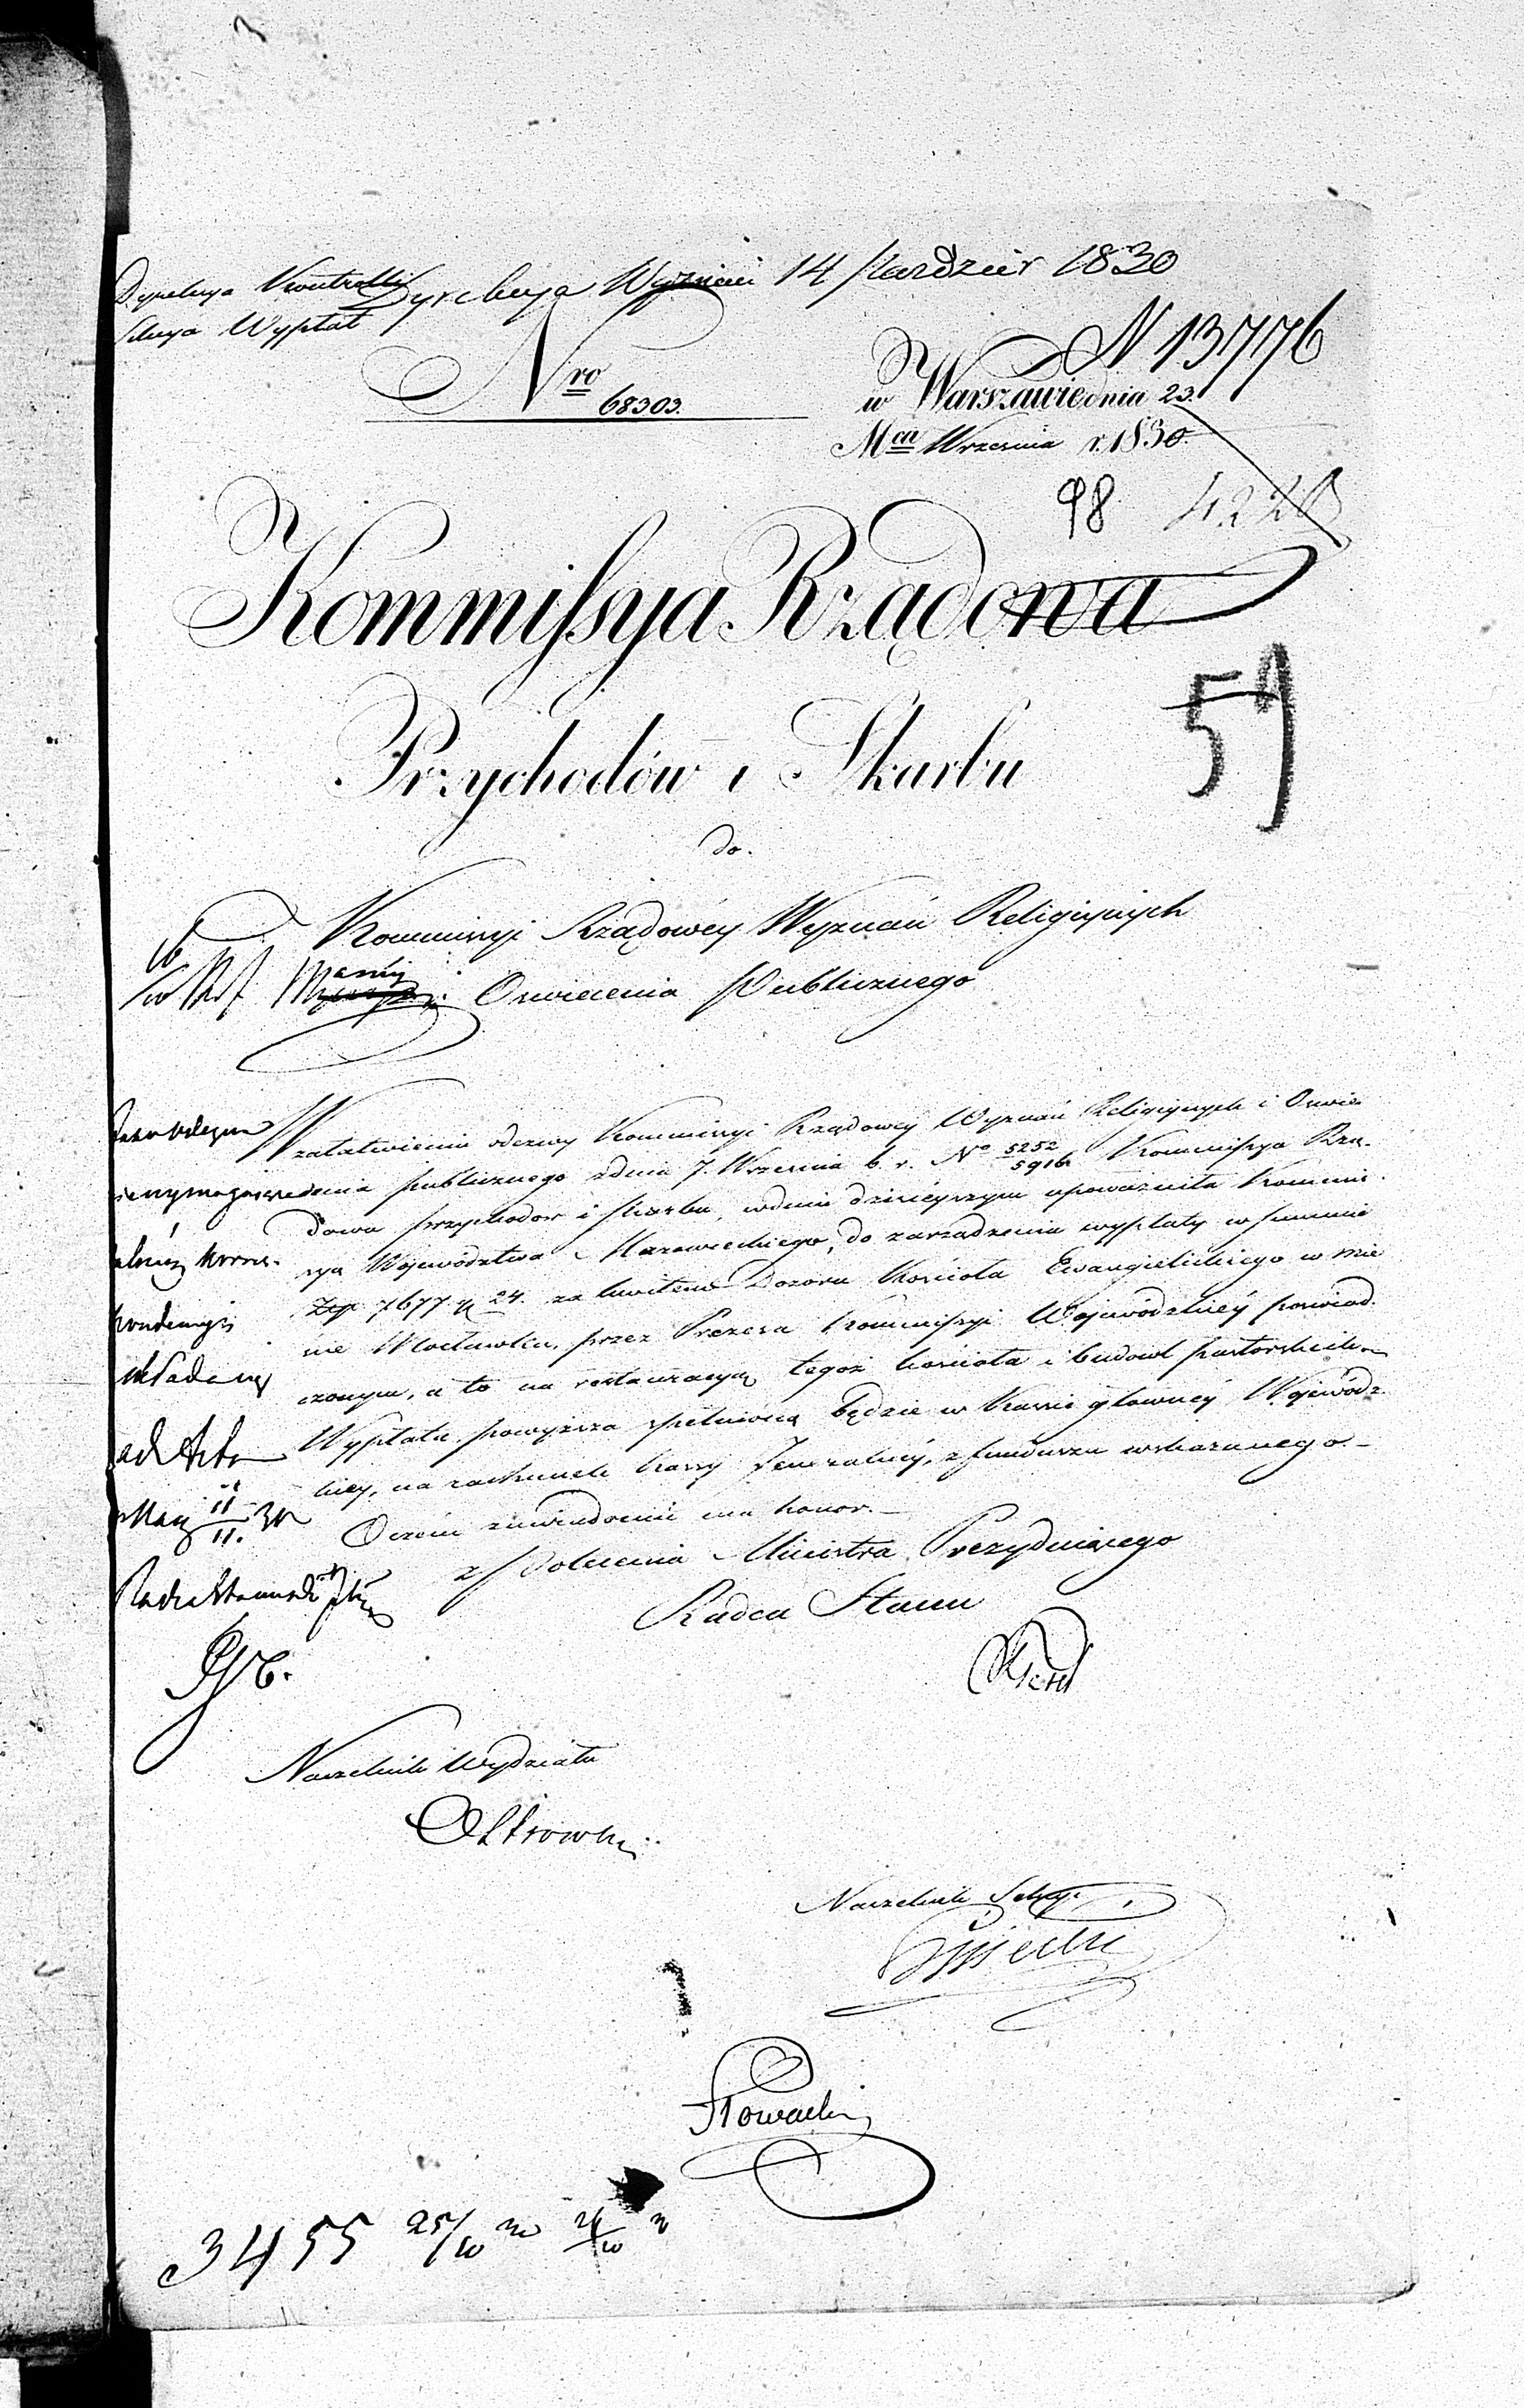 Dyrekcya Kontrolli
Sekcya Wypłat
Dyrekcya Wyznań 14 Pazdzier 1830
N 13776
Nro 68303.
w Warszawie dnia 23.
Mca Września r. 1830.
98 4220
Kommissya Rządowa
59
Przychodów i Skarbu
do.
Kommissyi Rządowéy Wyznań Religiynych
i Oswiecenia Publicznego
W załatwieniu odezwy Kommissyi Rządowey Wyznań Religiynych i Oswie
cenia publicznego z dnia 7. Września b. r. No 5252/5916 Kommissya Rzą-
dowa przychodow i skarbu, w dniu dzisieyszym upoważniła Kommis-
sya Województwa Mazowieckiego, do zarządzenia wypłaty w summie
Złp. 7677 gr 24. za kwitem Dozoru Kościoła Ewangielickiego w mie
ście Włocławku, przez Prezesa Kommissyi Wojewódzkiéy poswiad-
czonym, a to na restauracyą tegoż kościoła i budowl pastorskich.
Wypłata powyższa spełnioną będzie w Kassie głowney Wojewódz-
kiey, na rachunek Kassy Jeneralnéy, z funduszu wskazanego.-
O czém zawiadomić ma honor.-
z Polecenia Ministra Prezyduiącego
Radca Stanu
nie wymaga
dalszéy korres-
pondencyi
składa się
ad Acta
11/11. 30
Naczelnik Wydziału
Ostrowski
Naczelnik Sekcyi
Nowacki
3455 25/10 30 26/10 30